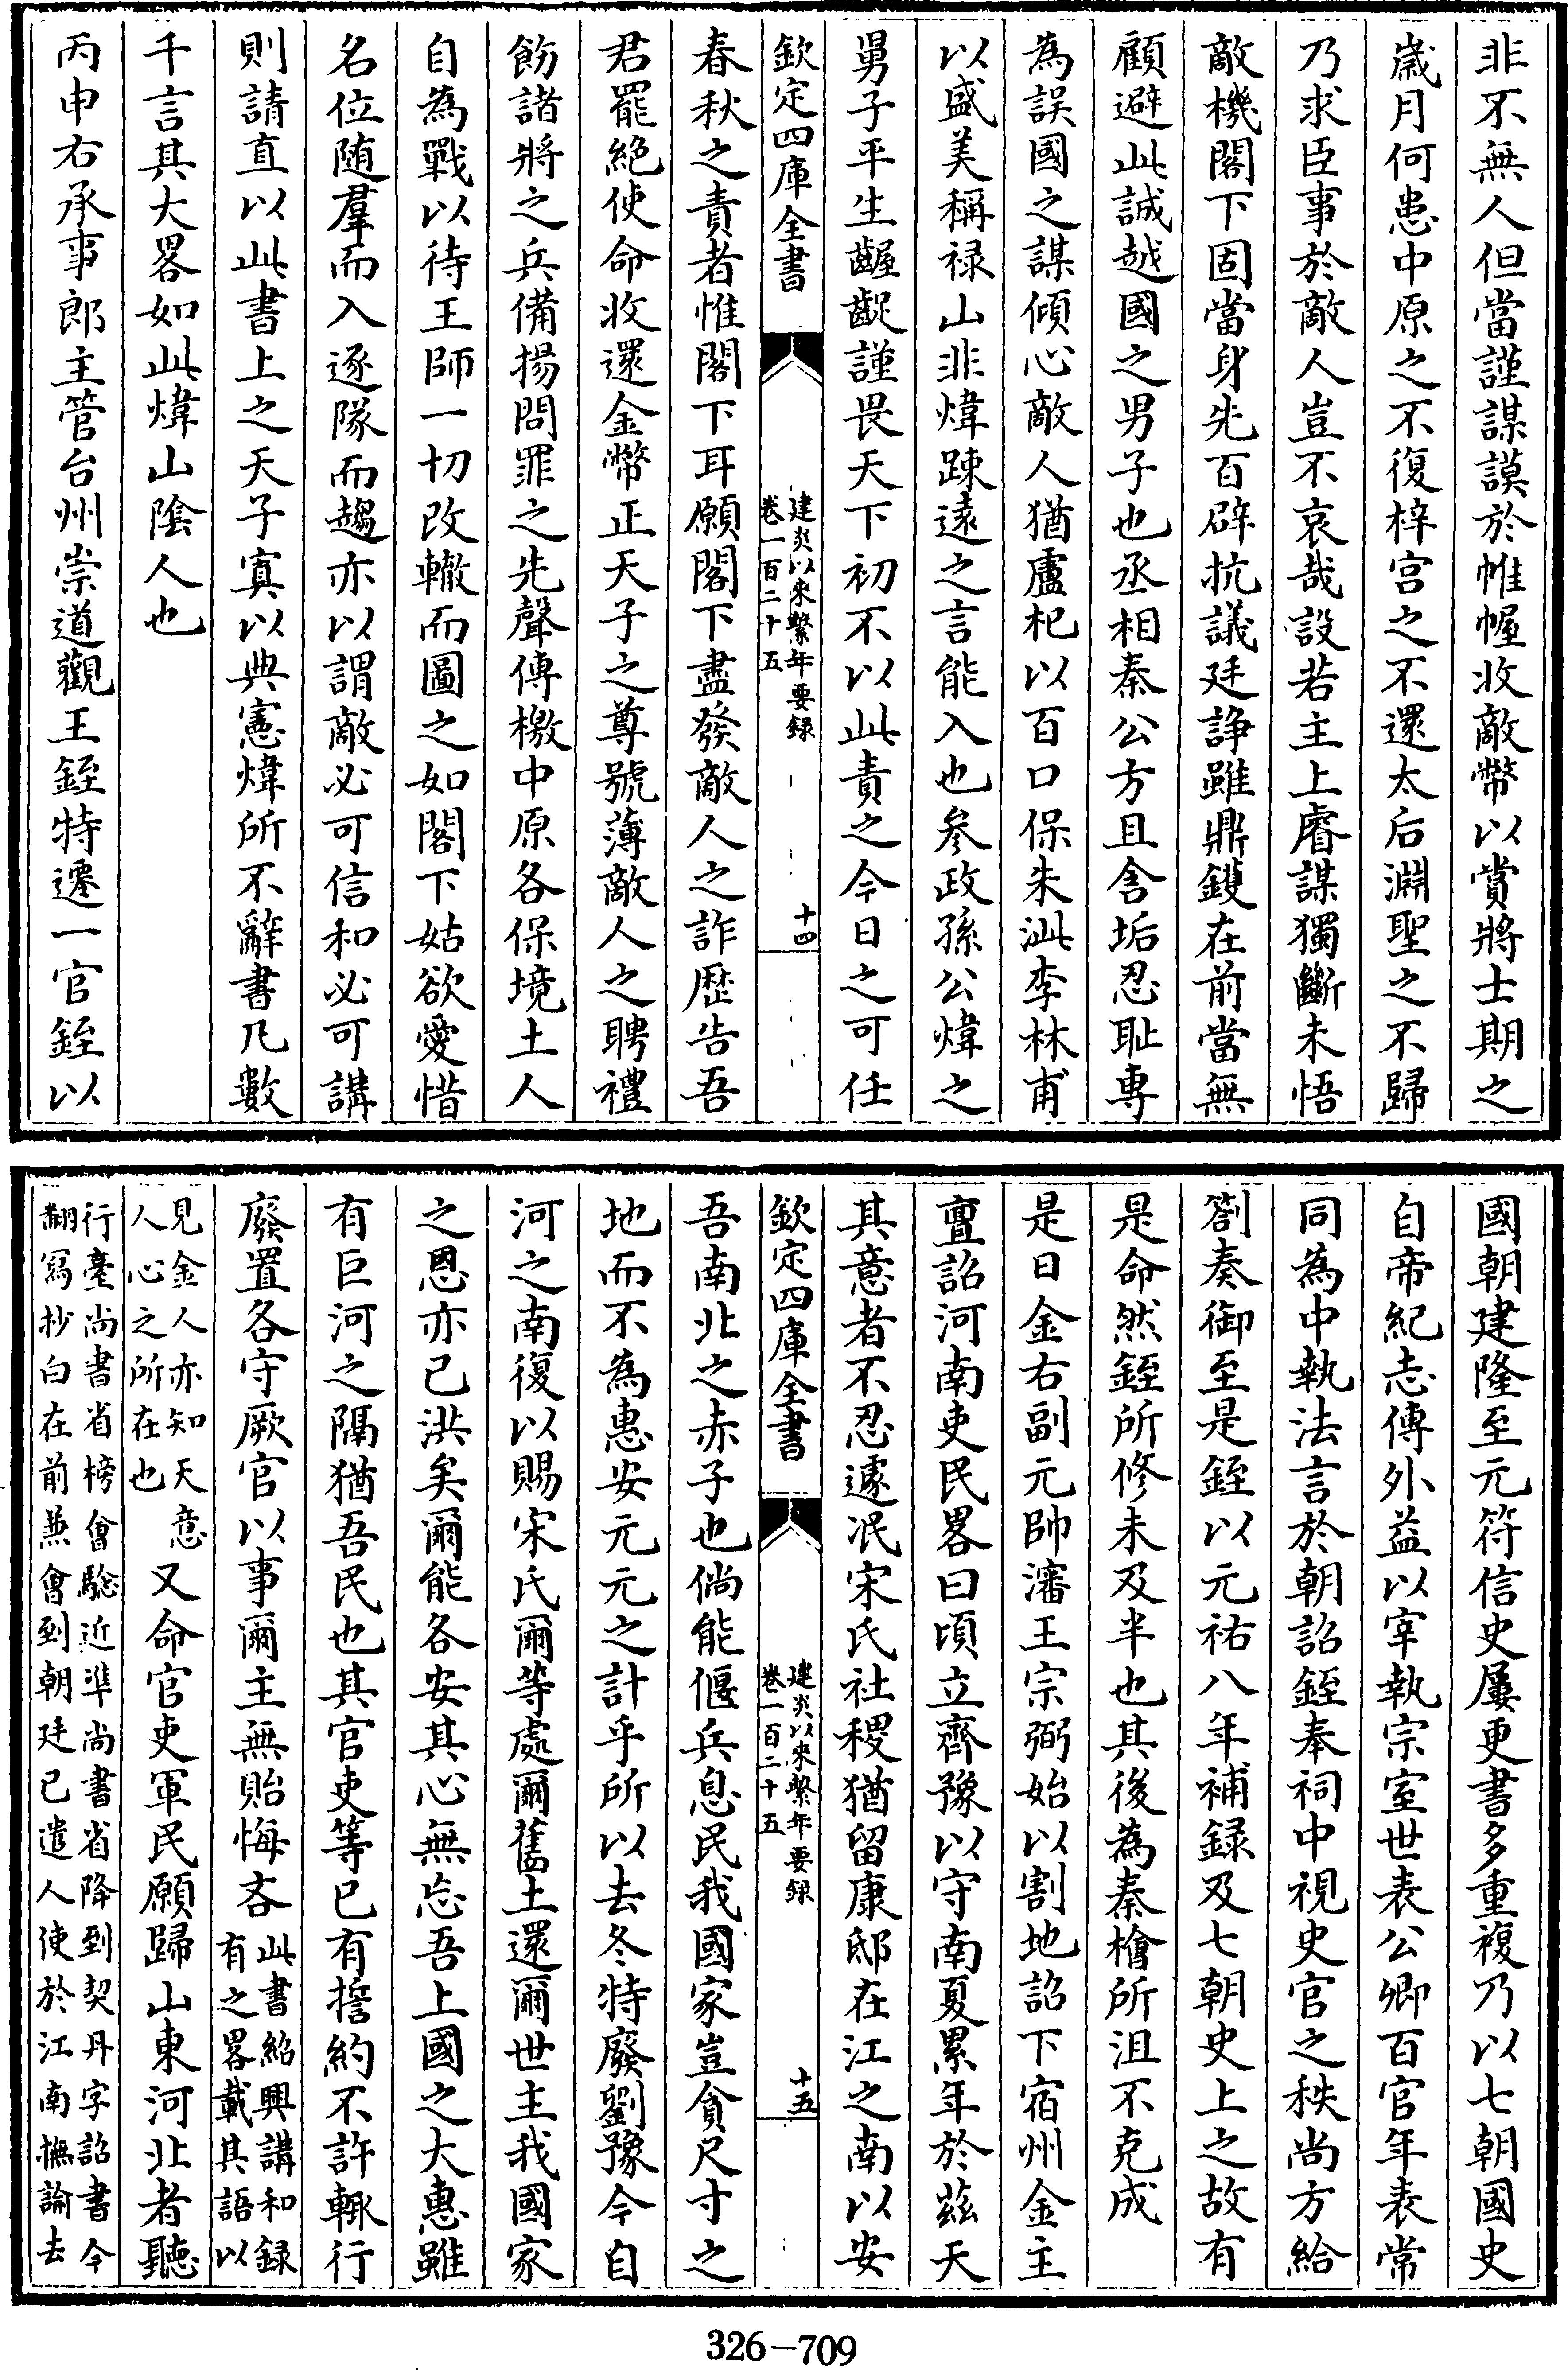 非不無人但當謹謀謨於帷幄收敵幣以賞將士期之
歲月何患中原之不復梓宫之不還太后淵聖之不歸
乃求臣事於敵人豈不哀哉設若主上睿謀獨斷未悟
敵機閣下固當身先百辟抗議廷諍雖鼎鑊在前當無
顧避此誠越國之男子也丞相秦公方且含垢忍耻專
為誤國之謀傾心敵人猶盧杞以百口保朱泚李林甫
以盛美稱禄山非煒踈遠之言能入也参政孫公煒之
舅子平生齷齪謹畏天下初不以此責之今日之可任
欽定四庫全書
建炎以來繫年要録
卷一百二十五
十四
春秋之責者惟閣下耳願閣下盡發敵人之詐歴告吾
君罷絶使命收還金幣正天子之尊號薄敵人之聘禮
飭諸將之兵備揚問罪之先聲傳檄中原各保境土人
自為戰以待王師一切改轍而圖之如閣下姑欲愛惜
名位随羣而入逐隊而趨亦以謂敵必可信和必可講
則請直以此書上之天子寘以典憲煒所不辭書凡數
千言其大畧如此煒山陰人也
丙申右承事郎主管台州崇道觀王銍特遷一官銍以
國朝建隆至元符信史屢更書多重複乃以七朝國史
自帝紀志傳外益以宰執宗室世表公卿百官年表常
同為中執法言於朝詔銍奉祠中視史官之秩尚方給
劄奏御至是銍以元祐八年補録及七朝史上之故有
是命然銍所修未及半也其後為秦檜所沮不克成
是日金右副元帥瀋王宗弼始以割地詔下宿州金主
亶詔河南吏民畧曰頃立齊豫以守南夏累年於茲天
其意者不忍遽泯宋氏社稷猶留康邸在江之南以安
欽定四庫全書
建炎以來繫年要録
卷一百二十五
十五
吾南北之赤子也倘能偃兵息民我國家豈貪尺寸之
地而不為惠安元元之計乎所以去冬特廢劉豫今自
河之南復以賜宋氏爾等處爾舊土還爾世主我國家
之恩亦已洪矣爾能各安其心無忘吾上國之大惠雖
有巨河之隔猶吾民也其官吏等已有誓約不許輒行
廢置各守厥官以事爾主無貽悔吝此書紹興講和録
有之畧載其語以
見金人亦知天意
人心之所在也又命官吏軍民願歸山東河北者聽
行臺尚書省榜會驗近準尚書省降到契丹字詔書今
翻冩抄白在前兼會到朝廷已遣人使於江南撫諭去
326-709